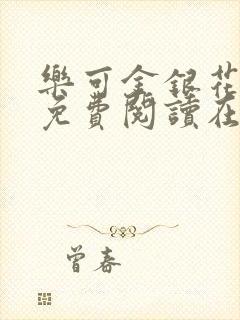 樂可金銀花
免費閱讀在
曾春